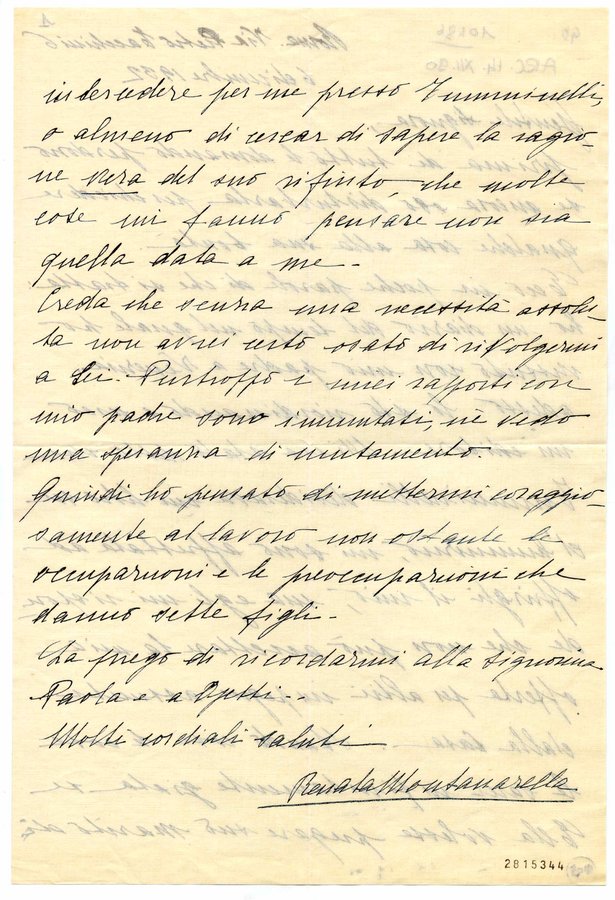 intercedere per me presso Tumminelli,
o almeno di cercar di sapere la ragio-
ne vera del suo rifiuto, che molte
cose mi fanno pensare non sia
quella data a me.-
Creda che senza una necessità assolu-
ta non avrei certo osato di rivolgermi
a Lei. Purtroppo i miei rapporti con
mio padre sono immutati, nè vedo
una speranza di mutamento.
Quindi ho pensato di mettermi coraggio-
samente al lavoro non ostante le
occupazioni e le preoccupazioni che
danno sette figli.-
La prego di ricordarmi alla Signorina
Paola e a
Molti cordiali saluti
Renata Montanarella
2815344